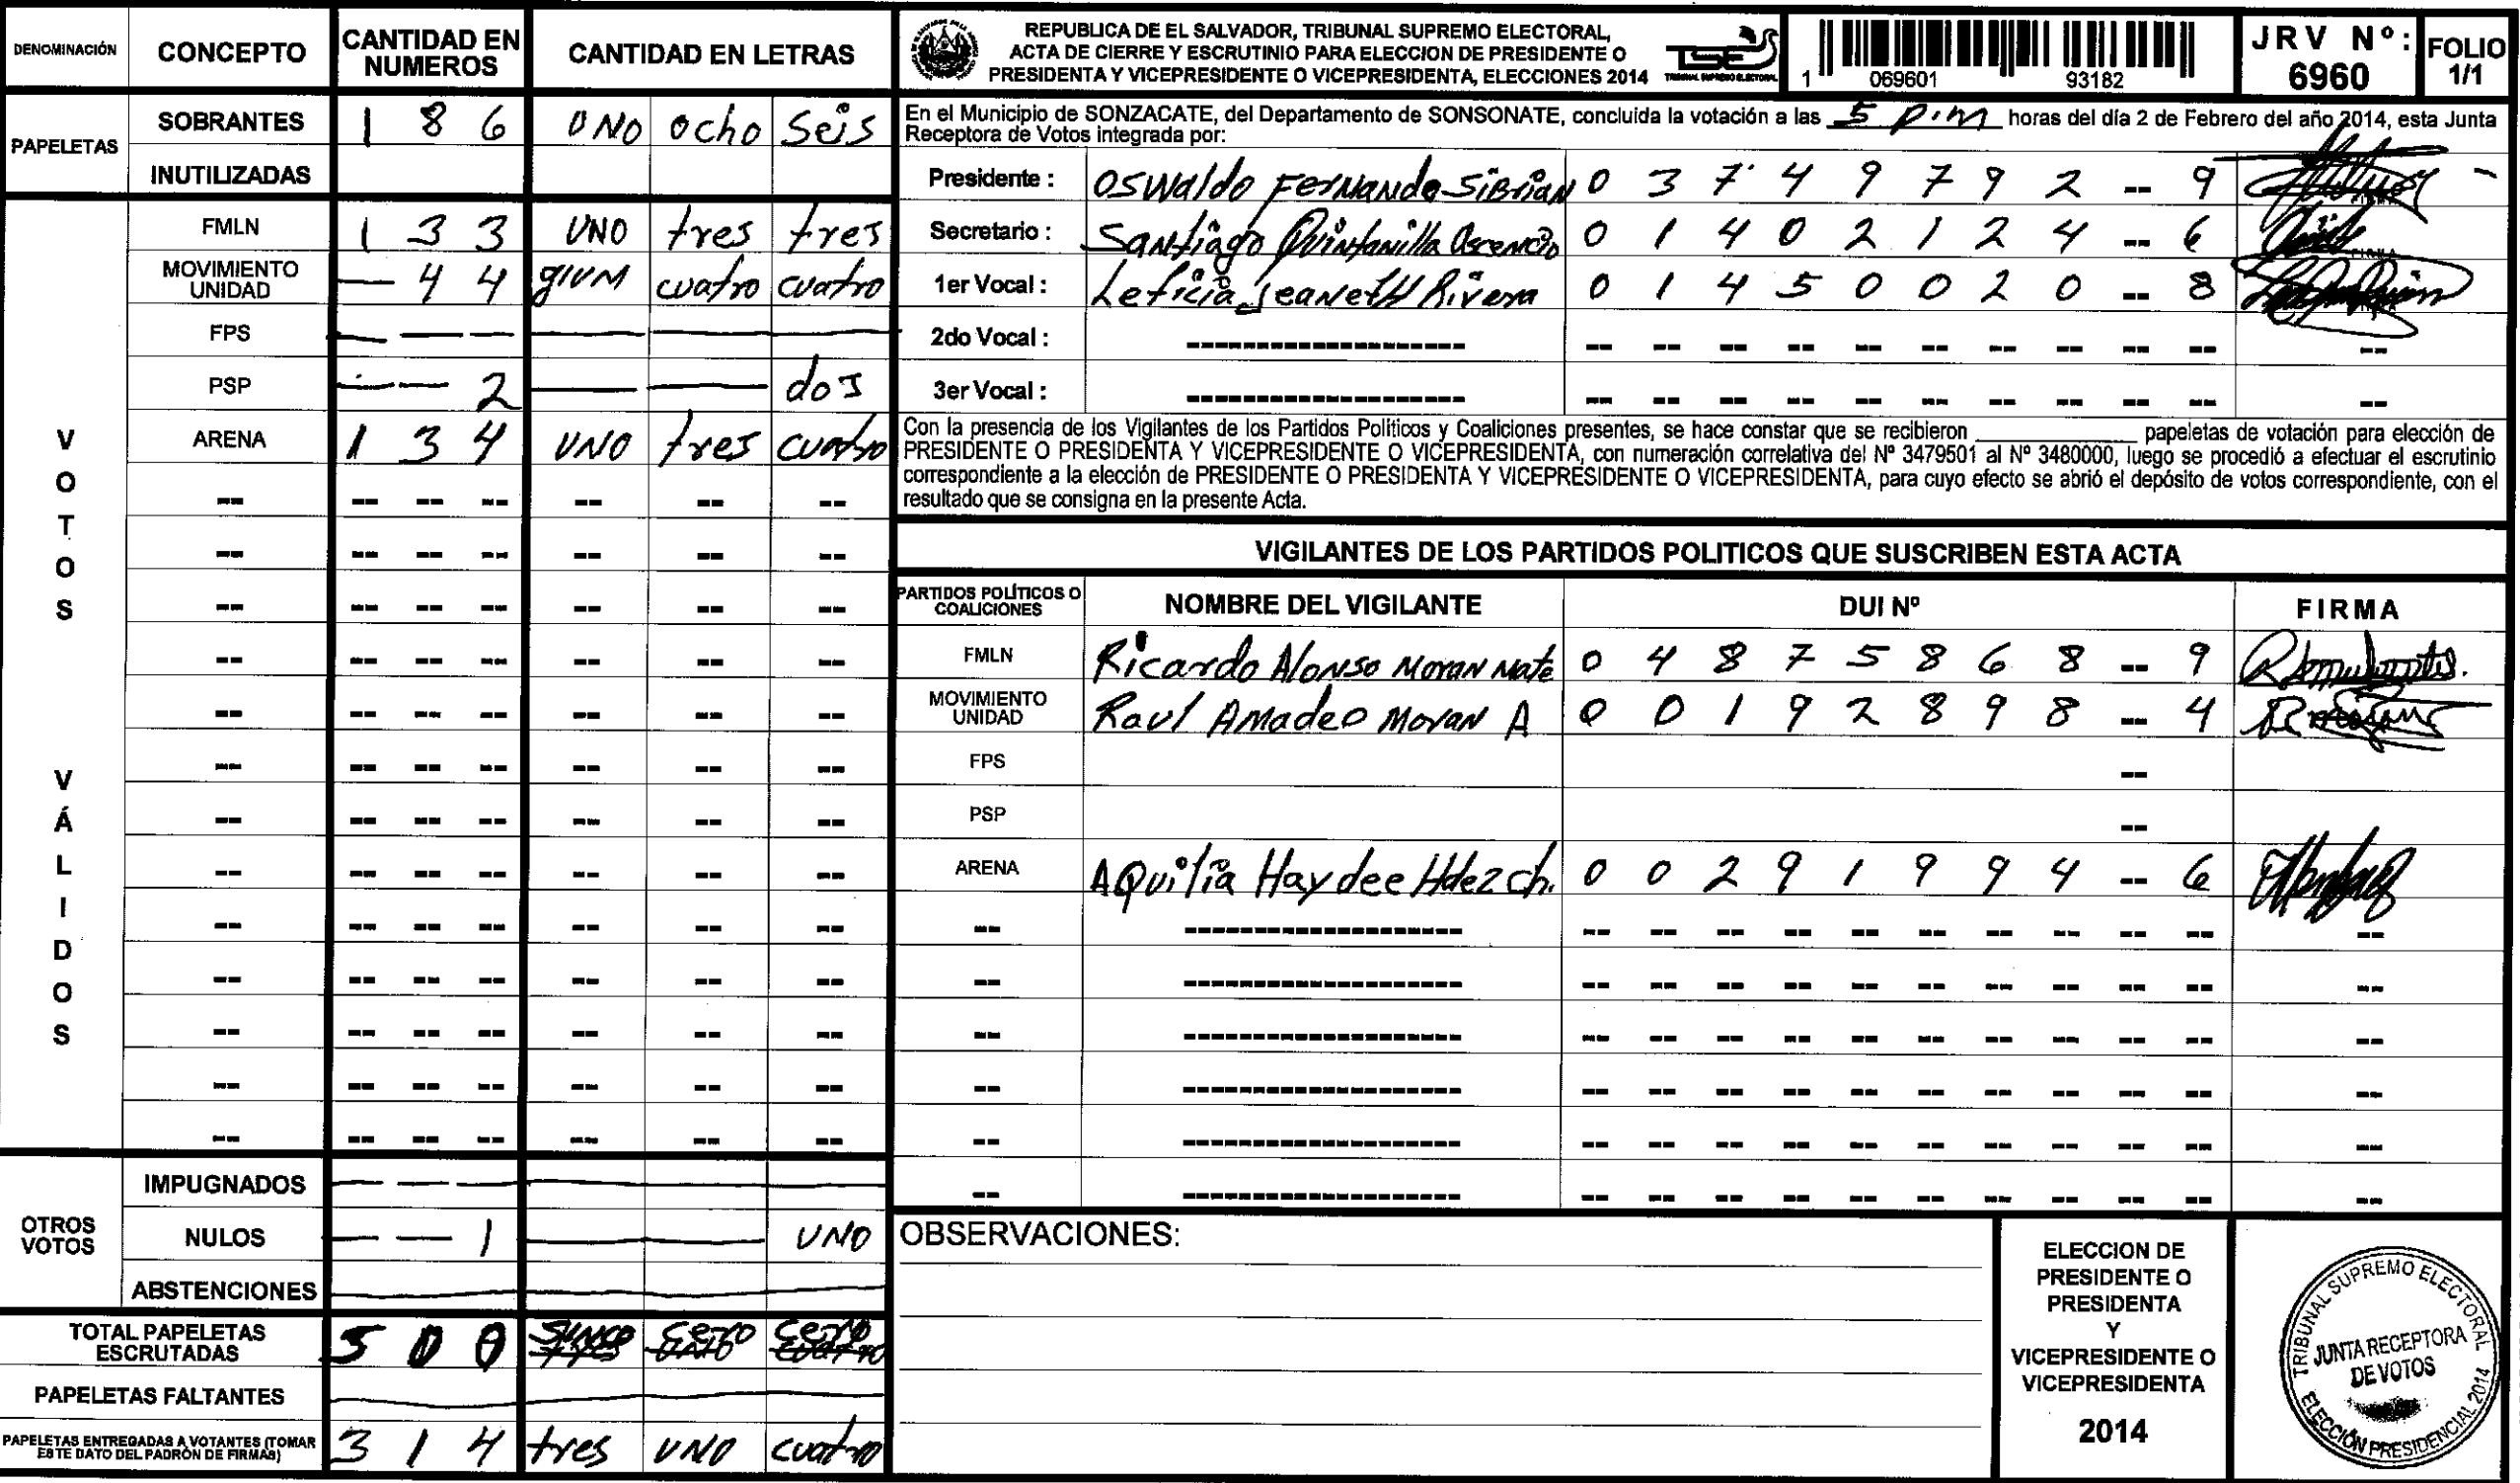 DENOMINACIÓN CONCEPTO CANTIDAD EN NUMEROS CANTIDAD EN LETRAS
PAPELETAS
SOBRANTES 1 8 6 UNO ocho Seis
INUTILIZADAS
VOTOS VÁLIDOS
FMLN 1 3 3 UNO tres tres
MOVIMIENTO UNIDAD — 4 4 guion cuatro cuatro
FPS — — — — — —
PSP — — 2 — — dos
ARENA 1 3 4 UNO tres cuatro
-- -- -- -- -- -- --
-- -- -- -- -- -- --
-- -- -- -- -- -- --
-- -- -- -- -- -- --
-- -- -- -- -- -- --
-- -- -- -- -- -- --
-- -- -- -- -- -- --
-- -- -- -- -- -- --
-- -- -- -- -- -- --
-- -- -- -- -- -- --
-- -- -- -- -- -- --
-- -- -- -- -- -- --
-- -- -- -- -- -- --
OTROS VOTOS
IMPUGNADOS — — — — — —
NULOS — — 1 — — UNO
ABSTENCIONES
TOTAL PAPELETAS ESCRUTADAS 5 0 0 cero cero
PAPELETAS FALTANTES
PAPELETAS ENTREGADAS A VOTANTES (TOMAR ESTE DATO DEL PADRÓN DE FIRMAS) 3 1 4 tres UNO cuatro
REPUBLICA DE EL SALVADOR, TRIBUNAL SUPREMO ELECTORAL,
ACTA DE CIERRE Y ESCRUTINIO PARA ELECCION DE PRESIDENTE O
PRESIDENTA Y VICEPRESIDENTE O VICEPRESIDENTA, ELECCIONES 2014
TSE
TRIBUNAL SUPREMO ELECTORAL
1 069601 93182
JRV Nº: 6960
FOLIO 1/1
En el Municipio de SONZACATE, del Departamento de SONSONATE, concluida la votación a las 5 p.m horas del día 2 de Febrero del año 2014, esta Junta
Receptora de Votos integrada por:
Presidente : Oswaldo Fernando Sibrian 0 3 7 4 9 7 9 2 -- 9
Secretario : Santiago Quintanilla Ascencio 0 1 4 0 2 1 2 4 -- 6
1er Vocal : Leticia Jeaneth Rivera 0 1 4 5 0 0 2 0 -- 8
2do Vocal : ------------------- -- -- -- -- -- -- -- -- -- -- --
3er Vocal : ------------------- -- -- -- -- -- -- -- -- -- -- --
Con la presencia de los Vigilantes de los Partidos Políticos y Coaliciones presentes, se hace constar que se recibieron ____________ papeletas de votación para elección de
PRESIDENTE O PRESIDENTA Y VICEPRESIDENTE O VICEPRESIDENTA, con numeración correlativa del Nº 3479501 al Nº 3480000, luego se procedió a efectuar el escrutinio
correspondiente a la elección de PRESIDENTE O PRESIDENTA Y VICEPRESIDENTE O VICEPRESIDENTA, para cuyo efecto se abrió el depósito de votos correspondiente, con el
resultado que se consigna en la presente Acta.
VIGILANTES DE LOS PARTIDOS POLITICOS QUE SUSCRIBEN ESTA ACTA
PARTIDOS POLÍTICOS O COALICIONES NOMBRE DEL VIGILANTE DUI Nº FIRMA
FMLN Ricardo Alonso Moran Mate 0 4 8 7 5 8 6 8 -- 9
MOVIMIENTO UNIDAD Raul Amadeo Moran A 0 0 1 9 2 8 9 8 -- 4
FPS --
PSP --
ARENA AQuilia Haydee Hdez ch. 0 0 2 9 1 9 9 4 -- 6
-- ------------------- -- -- -- -- -- -- -- -- -- -- --
-- ------------------- -- -- -- -- -- -- -- -- -- -- --
-- ------------------- -- -- -- -- -- -- -- -- -- -- --
-- ------------------- -- -- -- -- -- -- -- -- -- -- --
-- ------------------- -- -- -- -- -- -- -- -- -- -- --
-- ------------------- -- -- -- -- -- -- -- -- -- -- --
OBSERVACIONES:
ELECCION DE
PRESIDENTE O
PRESIDENTA
Y
VICEPRESIDENTE O
VICEPRESIDENTA
2014
TRIBUNAL SUPREMO ELECTORAL
JUNTA RECEPTORA
DE VOTOS
ELECCIÓN PRESIDENCIAL 2014